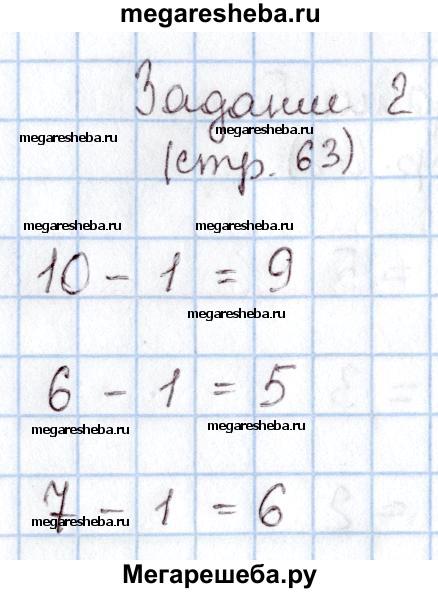 megaresheba.ru
Задание 2
megaresheba.ru megaresheba.ru
(стр. 63)
megaresheba.ru megaresheba.ru
10 - 1 = 9
megaresheba.ru
6 - 1 = 5
megaresheba.ru megaresheba.ru
7 - 1 = 6
megaresheba.ru
Мегарешеба.ру